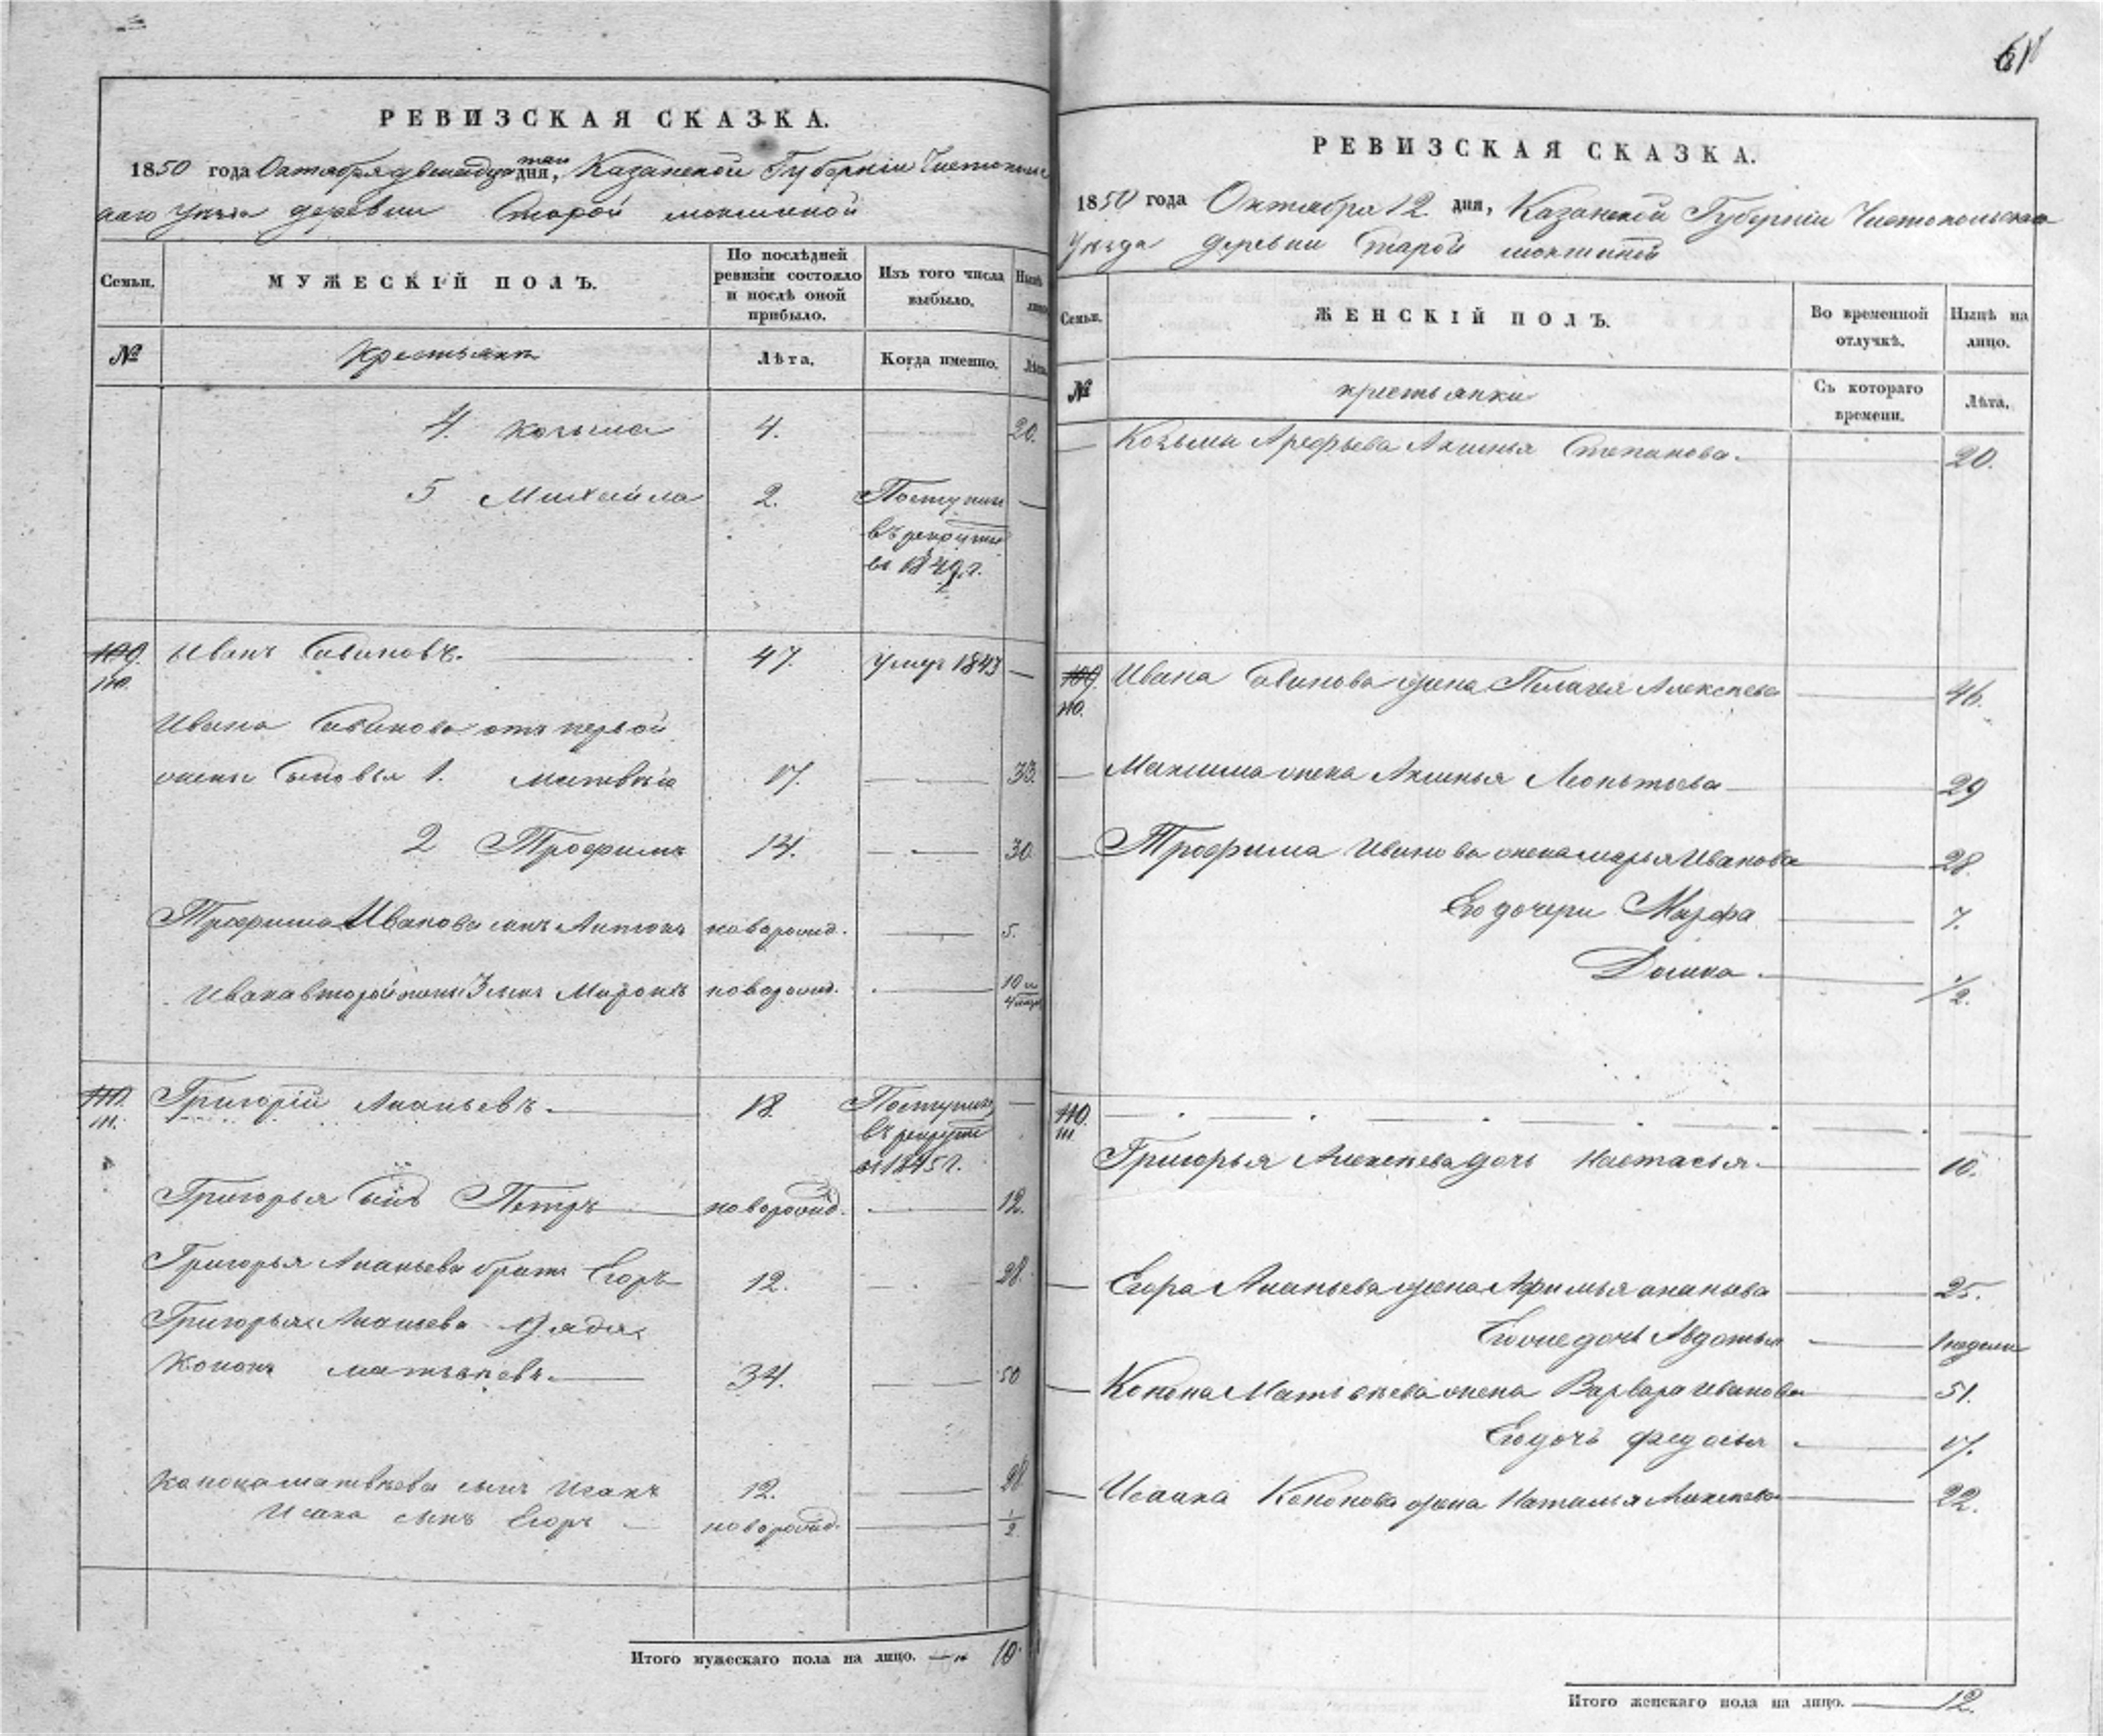 РЕВИЗСКАЯ СКАЗКА.
1850 года Октября двенадцатаго дня, Казанской Губерніи Чистополь
скаго Уѣзда деревни Старой мокшиной
Семьи. МУЖЕСКІЙ ПОЛЪ. По послѣдней ревизіи состояло и послѣ оной прибыло. Изъ того числа выбыло. Нынѣ
№ Крестьяне Лѣта. Когда именно. Лѣта
4. Козьма 4. 20.
5 Михайла 2. Поступил
въ рекруты
въ 1849 г.
109. Иванъ Савиновъ. 47. умеръ 1843
110.
Ивана Савинова отъ первой
жены Сыновья 1. Матвѣй 17. 33.
2 Трофимъ 14. 30
Трофима Иванова сынъ Антонъ новорожд. 5.
Ивана второй жены 3 сынъ Миронъ новорожд. 10 и
4 мѣс
110. Григорій Ананьевъ. 18. Поступил
111. въ рекруты
въ 1845 г.
Григорья Сынъ Петръ новорожд. 12.
Григорья Ананьева братъ Егоръ 12. 28.
Григорья Ананьева дядя
Кононъ матвѣевъ. 34. 50
Конона матвѣева сынъ Исакъ 12. 28
Исака сынъ Егоръ новорожд. 1/2
Итого мужескаго пола на лицо. 10.
61
РЕВИЗСКАЯ СКАЗКА.
1850 года Октября 12 дня, Казанской Губерніи Чистопольскаго
Уѣзда деревни Старой мокшиной
Семьи. ЖЕНСКІЙ ПОЛЪ. Во временной отлучкѣ. Нынѣ на лицо.
№ крестьянки Съ котораго времени. Лѣта.
Козьмы Арефьева Аксинья Степанова. 20.
109. Ивана Савинова жена Пелагея Алексѣева 46.
110.
Максима жена Аксинья Леонтьева 29
Трофима Иванова жена марья Иванова 28.
Его дочери Марфа 7.
Домна 1/2.
110.
111
Григорья Алексѣева дочь Настасья 10.
Егора Ананьева жена Афимья ананьева 25.
Его же дочь Авдотья 1 недели
Конона Матвѣева жена Варвара иванова 51.
Его дочь федосья 17.
Исаака Кононова жена Наталья Алексѣева 22.
Итого женскаго пола на лицо. 12.